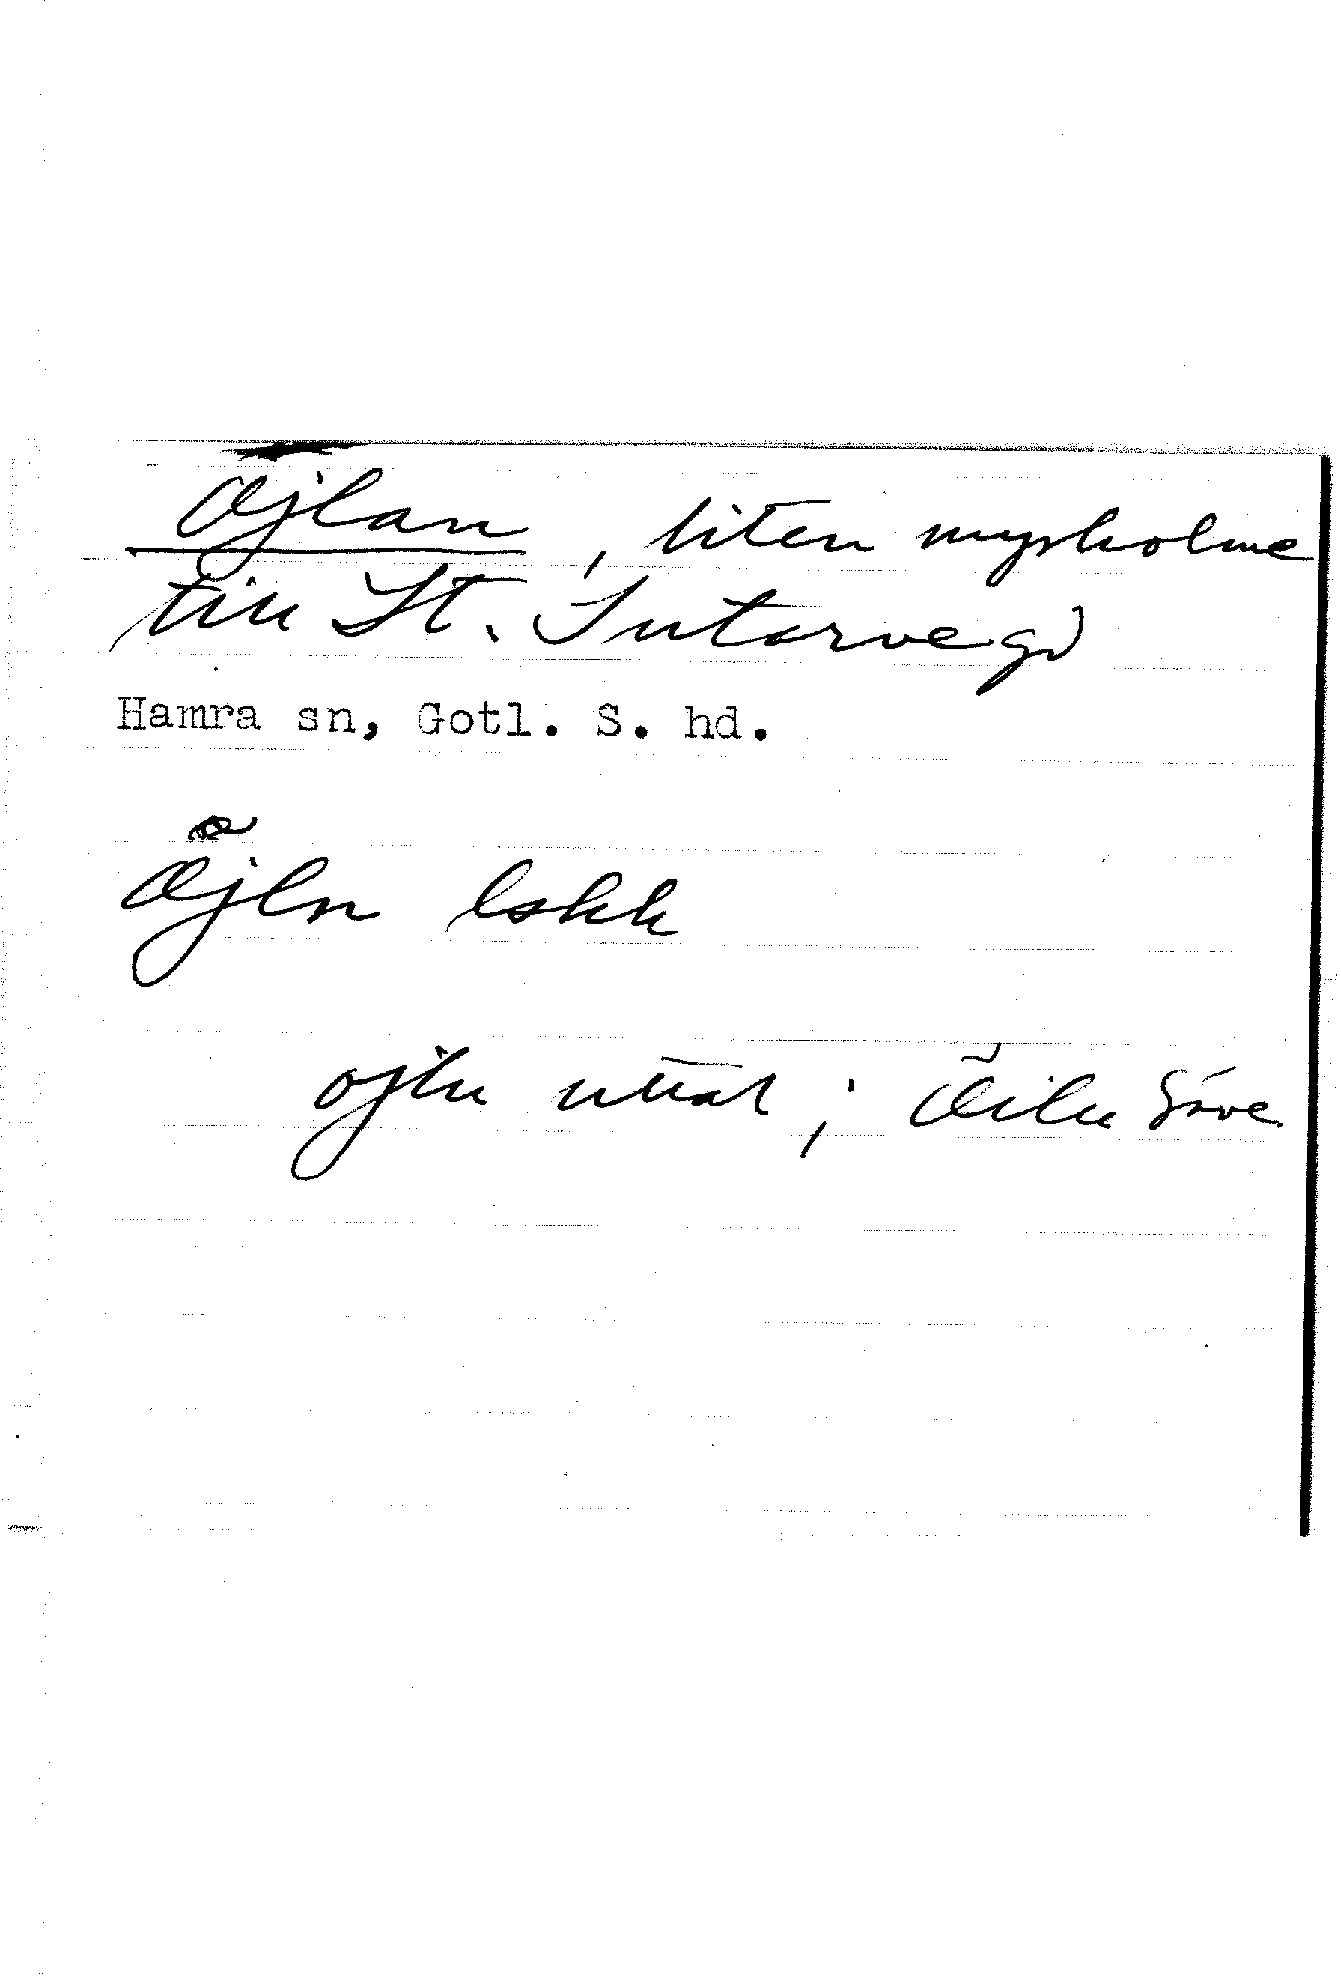 Öjlan, liten myrholme
till St. Sutarve gd
Hamra sn, Gotl. S. hd.
Öjln lskk
ojln uttal; Õiln Säve